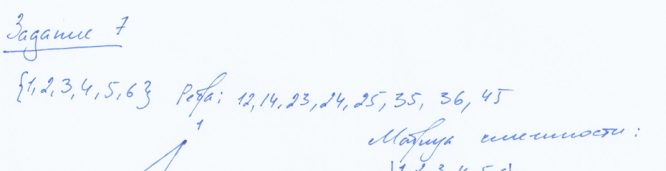 Задание 7
{1,2,3,4,5,6} Ребра: 12,14,23,24,25,35, 36, 45
1
Матрица смежности:
1 2 3 4 5 6